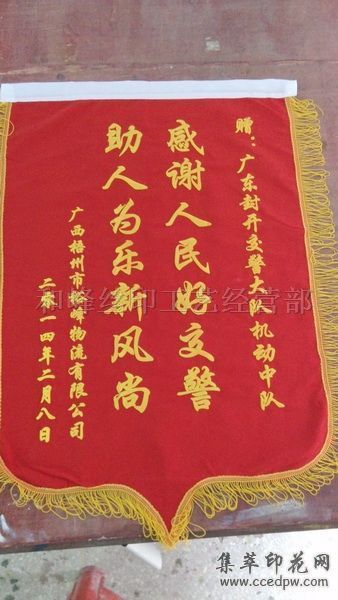 赠：广东封开交警大队机动中队
感谢人民好交警
助人为乐新风尚
广西梧州市松峰物流有限公司
二零一四年二月八日
和峰丝印工艺经营部
集萃印花网
www.ccedpw.com